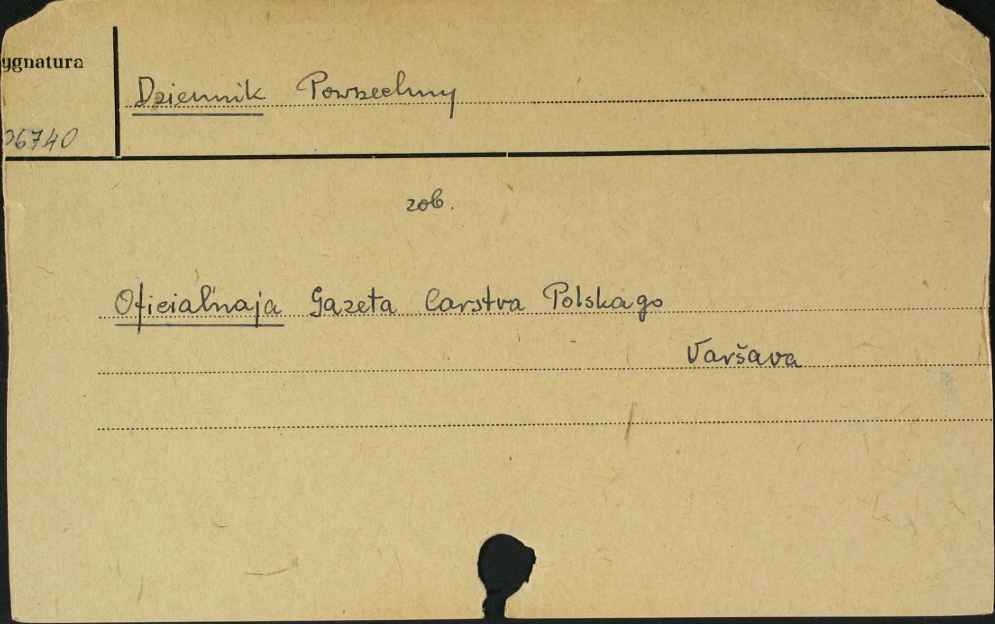 ygnatura
Dziennik Powszechny
06740
zob.
Oficial'naja Gazeta Carstva Polskago
Varšava